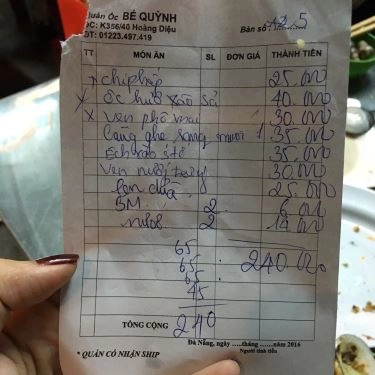 Quán Ốc BÉ QUỲNH
ĐC: K356/40 Hoàng Diệu
ĐT: 01223.497.419
Bàn số: 5
TT MÓN ĂN SL ĐƠN GIÁ THÀNH TIỀN
x chip hấp 25.000
x ốc hút xào sả 40.000
x vẹn phô mai 30.000
Càng ghẹ rang muối 1 35.000
35.000
vẹn nướng 30.000
dừa 25.000
BM 2 6.000
nước 2 14.000
65
65 : 240.000
65
45
TỔNG CỘNG 240
Đà Nẵng, ngày ......tháng ......năm 2016
* QUÁN CÓ NHẬN SHIP
Người tính tiền